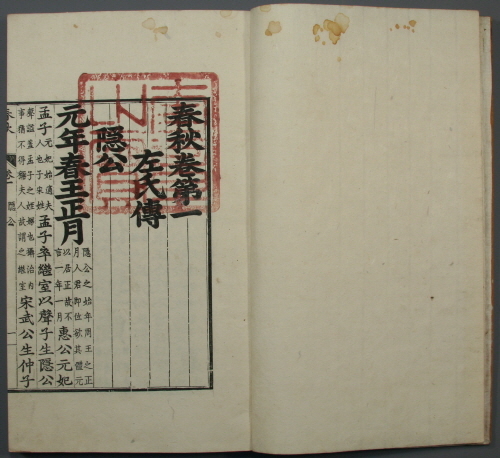 春秋卷第一
左氏傳
隱公
元年春王正月
隱公之始年周王之正
月人君即位欲其體元
以居正故不
言一年一月
惠公元妃
孟子
元妃始適夫
人也子宋姓
孟子卒繼室以聲子生隱公
聲謚蓋孟子之姪娣也攝治內
事猶不得稱夫人故謂之繼室
宋武公生仲子
卷一
隱公
一